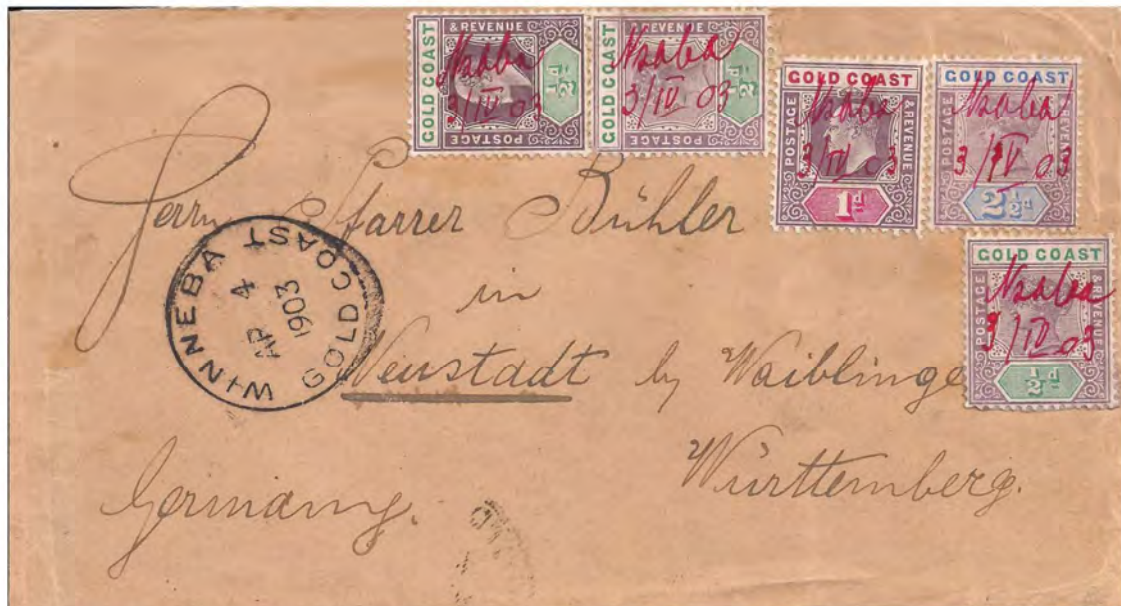 GOLD COAST
POSTAGE
& REVENUE
½d
Nsaba
3/IV 03
GOLD COAST
POSTAGE
& REVENUE
½d
Nsaba
3/IV 03
GOLD COAST
POSTAGE
& REVENUE
1d
Nsaba
3/IV 03
GOLD COAST
POSTAGE
REVENUE
2½d
Nsaba
3/IV 03
GOLD COAST
POSTAGE
REVENUE
½d
Nsaba
3/IV 03
Herrn Pfarrer Bühler
in
Neustadt by Waiblinge
Württemberg.
Germany.
WINNEBA
GOLD COAST
AP 4
1903